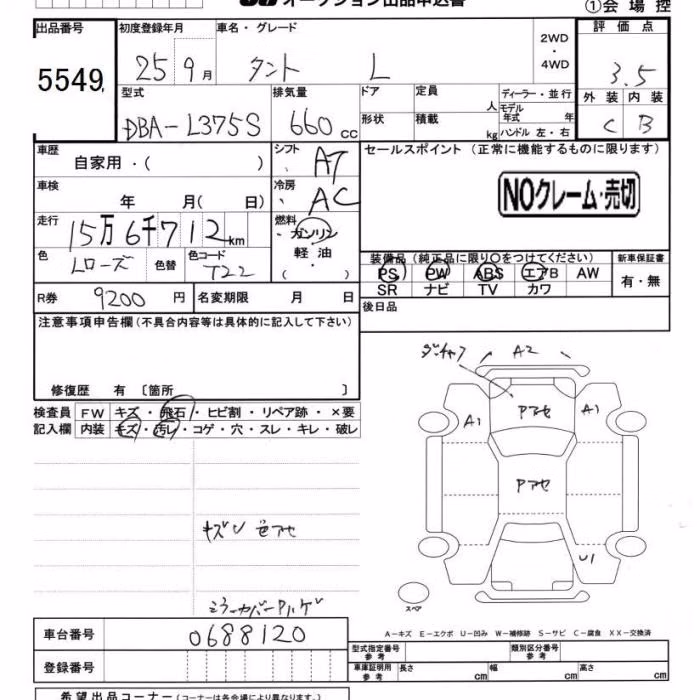 オークション出品申込書
①会場控
出品番号 初度登録年月 車名・グレード 2WD・4WD 評価点
5549 25 9月 タント L 3.5
外装 内装
C B
型式 排気量 ドア 定員 人 ディーラー・並行
DBA-L375S 660cc 形状 積載 kg モデル年式 年
ハンドル 左・右
車歴 自家用・( ) シフト AT セールスポイント (正常に機能するものに限ります)
車検 年 月(日) 冷房 AC NOクレーム・売切
走行 15万6千712km 燃料 ・ガソリン
軽油
・( )
色 Lローズ 色替 色コード T22
装備品 (純正品に限り○をつけてください) 新車保証書
PS PW ABS エアB AW 有・無
SR ナビ TV カワ
R券 9200円 名変期限 月 日 後日品
注意事項申告欄(不具合内容等は具体的に記入して下さい)
修復歴 有 〔箇所 〕
検査員 FW キズ・飛石・ヒビ割・リペア跡・×要
記入欄 内装 キズ・汚レ・コゲ・穴・スレ・キレ・破レ
A2
Pアセ
A1
A1
Pアセ
U1
スペア
キズU 色アセ
ミラーカバーPハゲ
A−キズ E−エクボ U−凹み W−補修跡 S−サビ C−腐食 XX−交換済
車台番号 0688120
型式指定番号 参考 類別区分番号 参考
登録番号
車庫証明用 参考 長さ cm 幅 cm 高さ cm
希望出品コーナー (コーナーは各会場により異なります。)